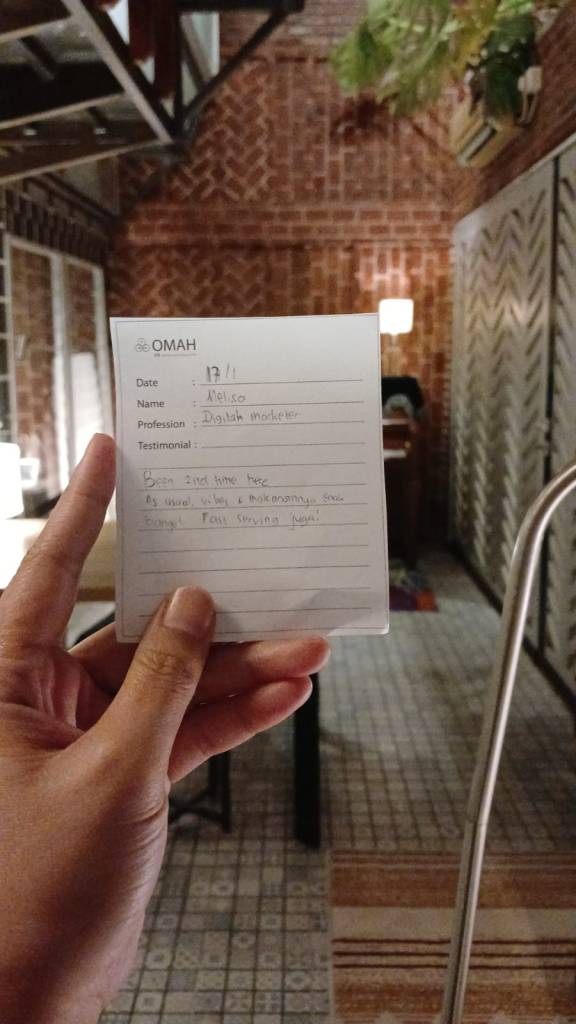 OMAH
Date : 17/1
Name : Melisa
Profession : Digital marketer
Testimonial :
Been 2nd time here
As usual, vibes & makanannya enak
banget. Fast serving juga!